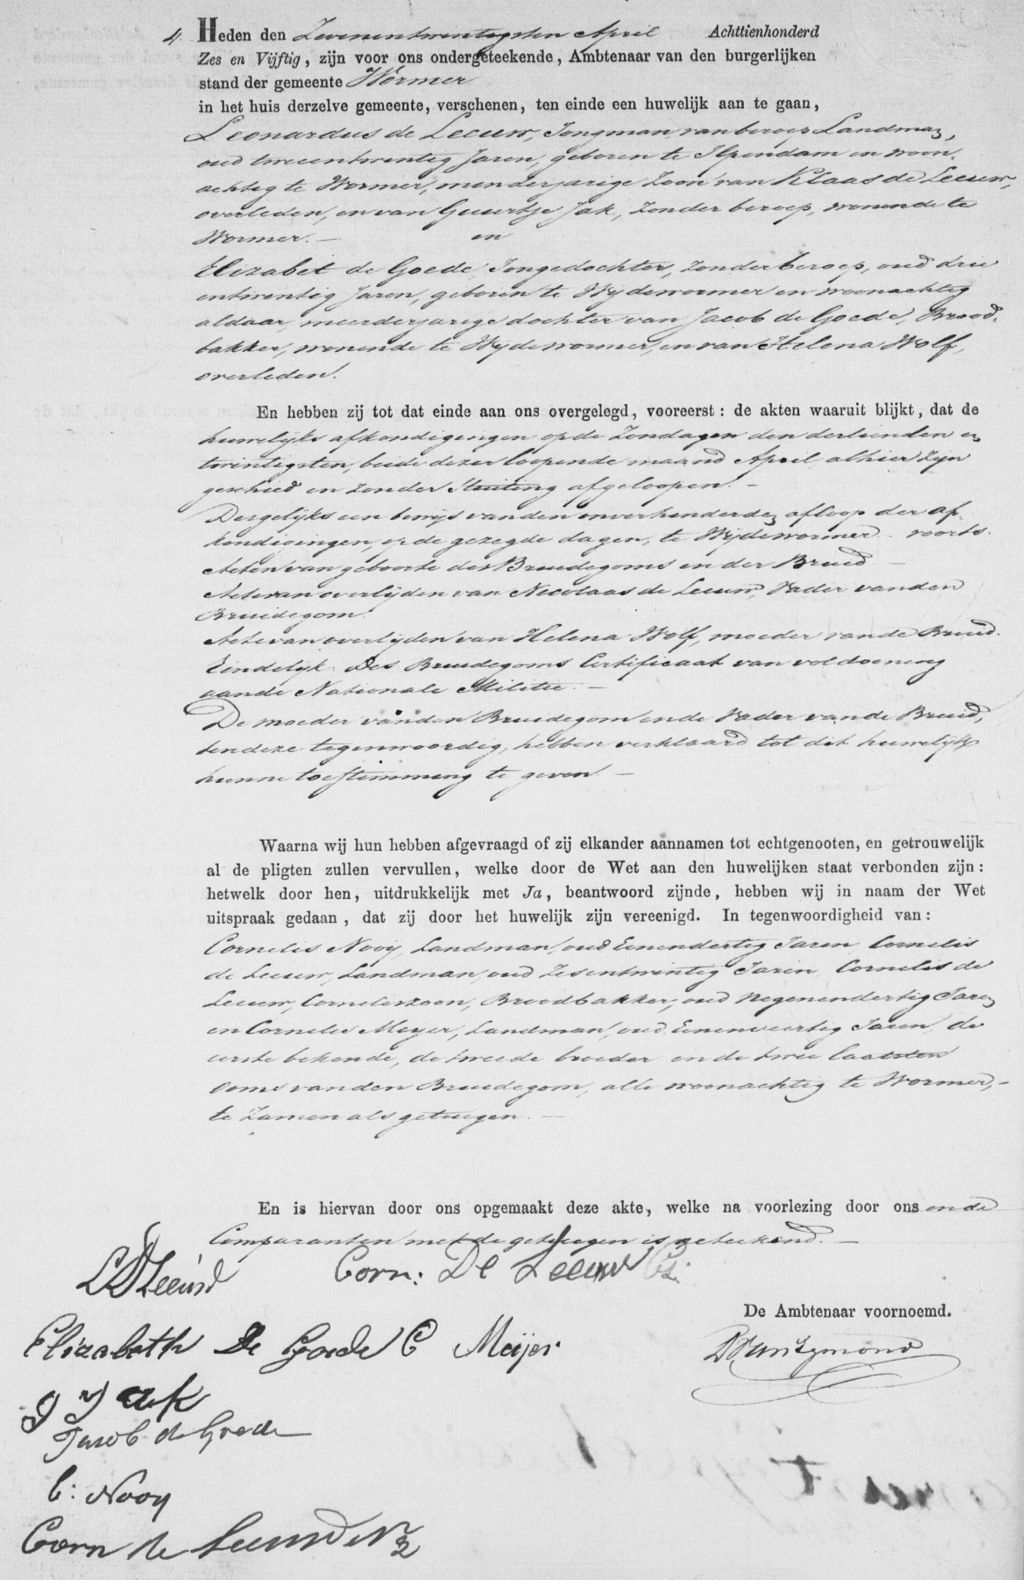 4. Heden den Zevenentwintigsten April Achttienhonderd
Zes en Vijftig, zijn voor ons ondergeteekende, Ambtenaar van den burgerlijken
stand der gemeente Wormer
in het huis derzelve gemeente, verschenen, ten einde een huwelijk aan te gaan,
Leonardus de Leeuw, Jongman, van beroep Landman,
oud tweeentwintig Jaren, geboren te Ilpendam en woon-
achtig te Wormer, minderjarige Zoon van Klaas de Leeuw,
overleden, en van Guurtje Jak, Zonder beroep, wonende te
Wormer. — en
Elizabet de Goede, Jongedochter, zonder beroep, oud drie
entwintig Jaren, geboren te Wijdewormer en woonachtig
aldaar, meerderjarige dochter van Jacob de Goede, Brood-
bakker, wonende te Wijdewormer, en van Helena Wolf,
overleden.
En hebben zij tot dat einde aan ons overgelegd, vooreerst: de akten waaruit blijkt, dat de
huwelijks afkondigingen op de Zondagen den dertienden en
twintigsten, beide dezer loopende maand April alhier zijn
geschied en zonder Stuiting afgeloopen. —
Dergelijks een bewijs van den onverhinderden afloop der af-
kondigingen, op de gezegde dagen, te Wijdewormer - voorts.
Acten van geboorte des Bruidegoms en der Bruid —
Acte van overlijden van Nicolaas de Leeuw, Vader van den
Bruidegom.
Acte van overlijden van Helena Wolf, moeder van de Bruid.
Eindelijk: Des Bruidegoms Certificaat van voldoening
aan de Nationale Militie. —
De moeder van den Bruidegom en de Vader van de Bruid,
ten deze tegenwoordig, hebben verklaard tot dit huwelijk
hunne toestemming te geven. —
Waarna wij hun hebben afgevraagd of zij elkander aannamen tot echtgenooten, en getrouwelijk
al de pligten zullen vervullen, welke door de Wet aan den huwelijken staat verbonden zijn:
hetwelk door hen, uitdrukkelijk met Ja, beantwoord zijnde, hebben wij in naam der Wet
uitspraak gedaan, dat zij door het huwelijk zijn vereenigd. In tegenwoordigheid van:
Cornelis Nooij, Landman, oud Eenendertig Jaren Cornelis
de Leeuw, Landman, oud Zesentwintig Jaren, Cornelis de
Leeuw, Corneliszoon, Broodbakker, oud Negenendertig Jaren
en Cornelis Meijer, Landman, oud Eenenveertig Jaren, de
eerste bekende, de tweede broeder en de twee laatsten
Ooms van den Bruidegom, alle woonachtig te Wormer, -
te Zamen als getuigen. —
En is hiervan door ons opgemaakt deze akte, welke na voorlezing door ons en de
Comparanten met de getuigen is geteekend. —
L D Leeuw Corn: De Leeuw Cz:
De Ambtenaar voornoemd.
Elizabeth De Goede C Meijer
g jak
Jacob de Goede
C: Nooy
Corn de Leeuw Nz